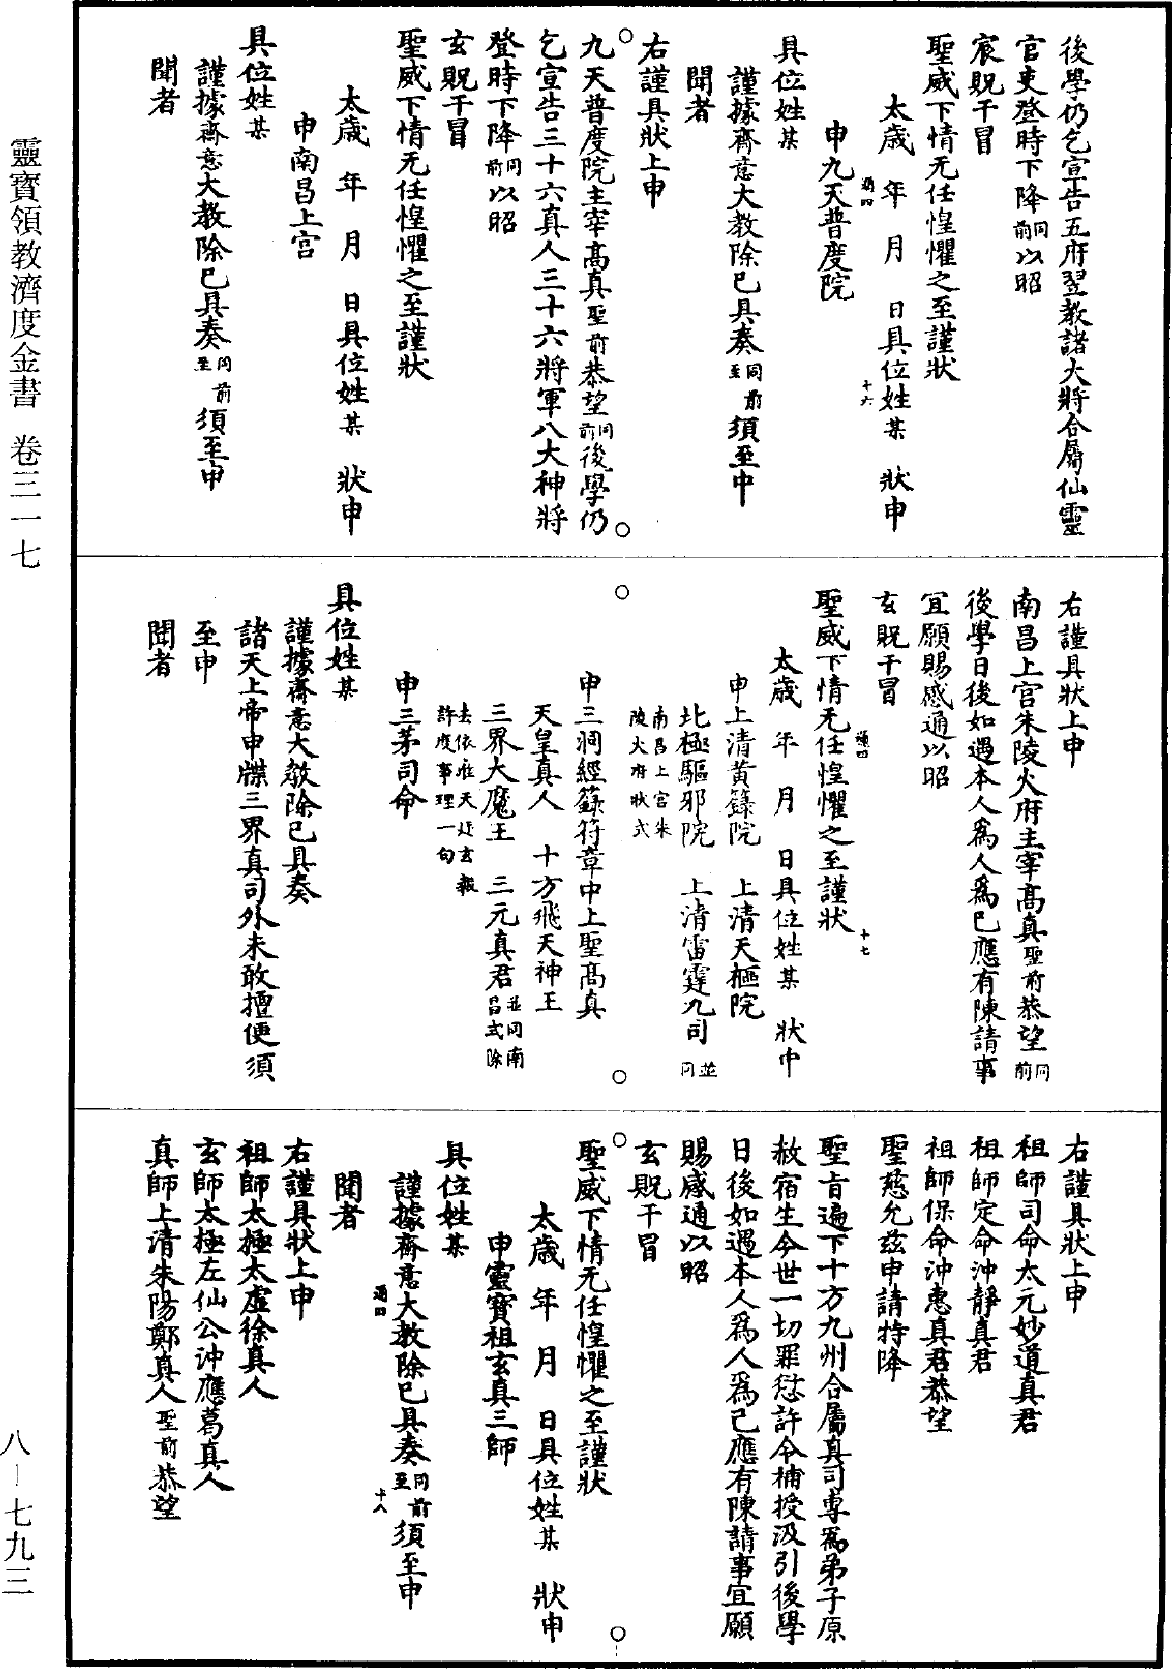 後學仍乞宣告五府翌教諸大將合屬仙靈
官吏登時下降同前以昭
宸貺干冒
聖威下情无任惶懼之至謹狀
太歲 年 月 日具位姓某 狀申
申九天普度院
具位姓某
謹據齋意大教除已具奏同前至須至申
聞者
右謹具狀上申
九天普度院主宰高真聖前恭望同前後學仍
乞宣告三十六真人三十六將軍八大神將
登時下降同前以昭
玄貺干冒
聖威下情无任惶懼之至謹狀
太歲 年 月 日具位姓某 狀申
申南昌上宮
具位姓某
謹據齋意大教除已具奏同前至須至申
聞者
右謹具狀上申
南昌上宮朱陵火府主宰高真聖前恭望同前
後學日後如遇本人為人為已應有陳請事
宜願賜感通以昭
玄貺干冒
聖威下情无任惶懼之至謹狀
太歲 年 月 日具位姓某 狀申
申上清黃籙院 上清天樞院
北極驅邪院 上清雷霆九司並同
南昌上宮朱陵火府狀式
申三洞經籙符章中上聖高真
天皇真人 十方飛天神王
三界大魔王 三元真君並同南昌式除
去依准天廷玄報許度事理一句
申三茅司命
具位姓某
謹據齋意大教除已具奏
諸天上帝申牒三界真司外未敢擅便須
至申
聞者
右謹具狀上申
祖師司命太元妙道真君
祖師定命沖靜真君
祖師保命沖惠真君恭望
聖慈允茲申請特降
聖旨遍下十方九州合屬真司專為弟子原
赦宿生今世一切罪愆許令補授汲引後學
日後如遇本人為人為已應有陳請事宜願
賜感通以昭
玄貺干冒
聖威下情无任惶懼之至謹狀
太歲 年 月 日具位姓某 狀申
申靈寶祖玄真三師
具位姓某
謹據齋意大教除已具奏同前至須至申
聞者
右謹具狀上申
祖師太極太虛徐真人
玄師太極左仙公沖應葛真人
真師上清朱陽鄭真人聖前恭望
通四 十六
通四 十七
通四 十八
靈寶領教濟度金書 卷三一七
八—七九三